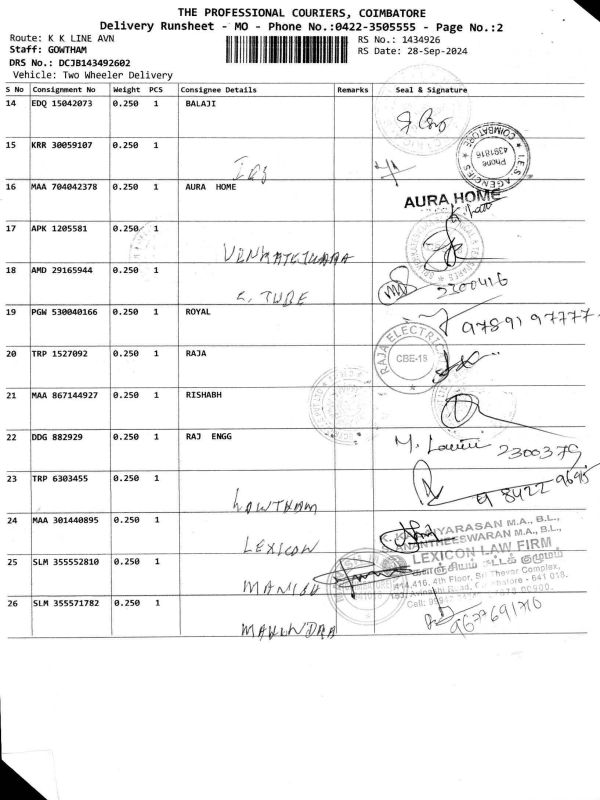 THE PROFESSIONAL COURIERS, COIMBATORE
Delivery Runsheet - MO - Phone No.:0422-3505555 - Page No.:2
Route: K K LINE AVN
RS No.: 1434926
Staff: GOWTHAM
RS Date: 28-Sep-2024
DRS No.: DCJB143492602
Vehicle: Two Wheeler Delivery
S No Consignment No Weight PCS Consignee Details Remarks Seal & Signature
14 EDQ 15042073 0.250 1 BALAJI
15 KRR 30059107 0.250 1
COIMBATORE
Phone
4391816
I.E.S. AGENCIES
16 MAA 704042378 0.250 1 AURA HOME
AURA HOME
17 APK 1205581 0.250 1
VENKATESHWARA
18 AMD 29165944 0.250 1
2300416
S. TUBE
19 PGW 530040166 0.250 1 ROYAL
97891 97777
20 TRP 1527092 0.250 1 RAJA
RAJA ELECTRICAL
CBE-18
21 MAA 867144927 0.250 1 RISHABH
22 DDG 882929 0.250 1 RAJ ENGG
2300379
23 TRP 6303455 0.250 1
GOWTHAM
24 MAA 301440895 0.250 1
LEXICON
M.A., B.L.,
ANANTHEESWARAN M.A., B.L.,
LEXICON LAW FIRM
25 SLM 355552810 0.250 1
414,416, 4th Floor, Sri Thevar Complex,
Road, - 641 018.
26 SLM 355571782 0.250 1
9677691710